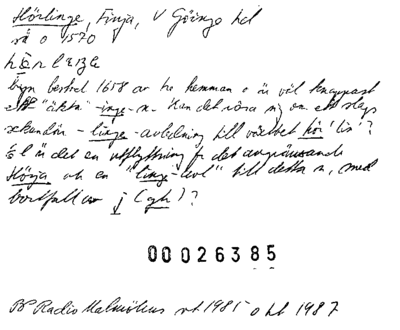 Hörlinge, Finja, V Göinge hd
rå o 1570
Byn bestod 1658 av tre hemman o är väl knappast
ett "äkta" -inge-n. Kan det röra sig om ett slags
sekundär -linge-avledning till växtbet hör 'lin'?
el är det en utflyttning fr det angränsande
Hörja och en "linge-evl" till detta n, med
bortfall av j (gh)?
00026385
BP Radio Malmöhus vt 1985 o ht 1987